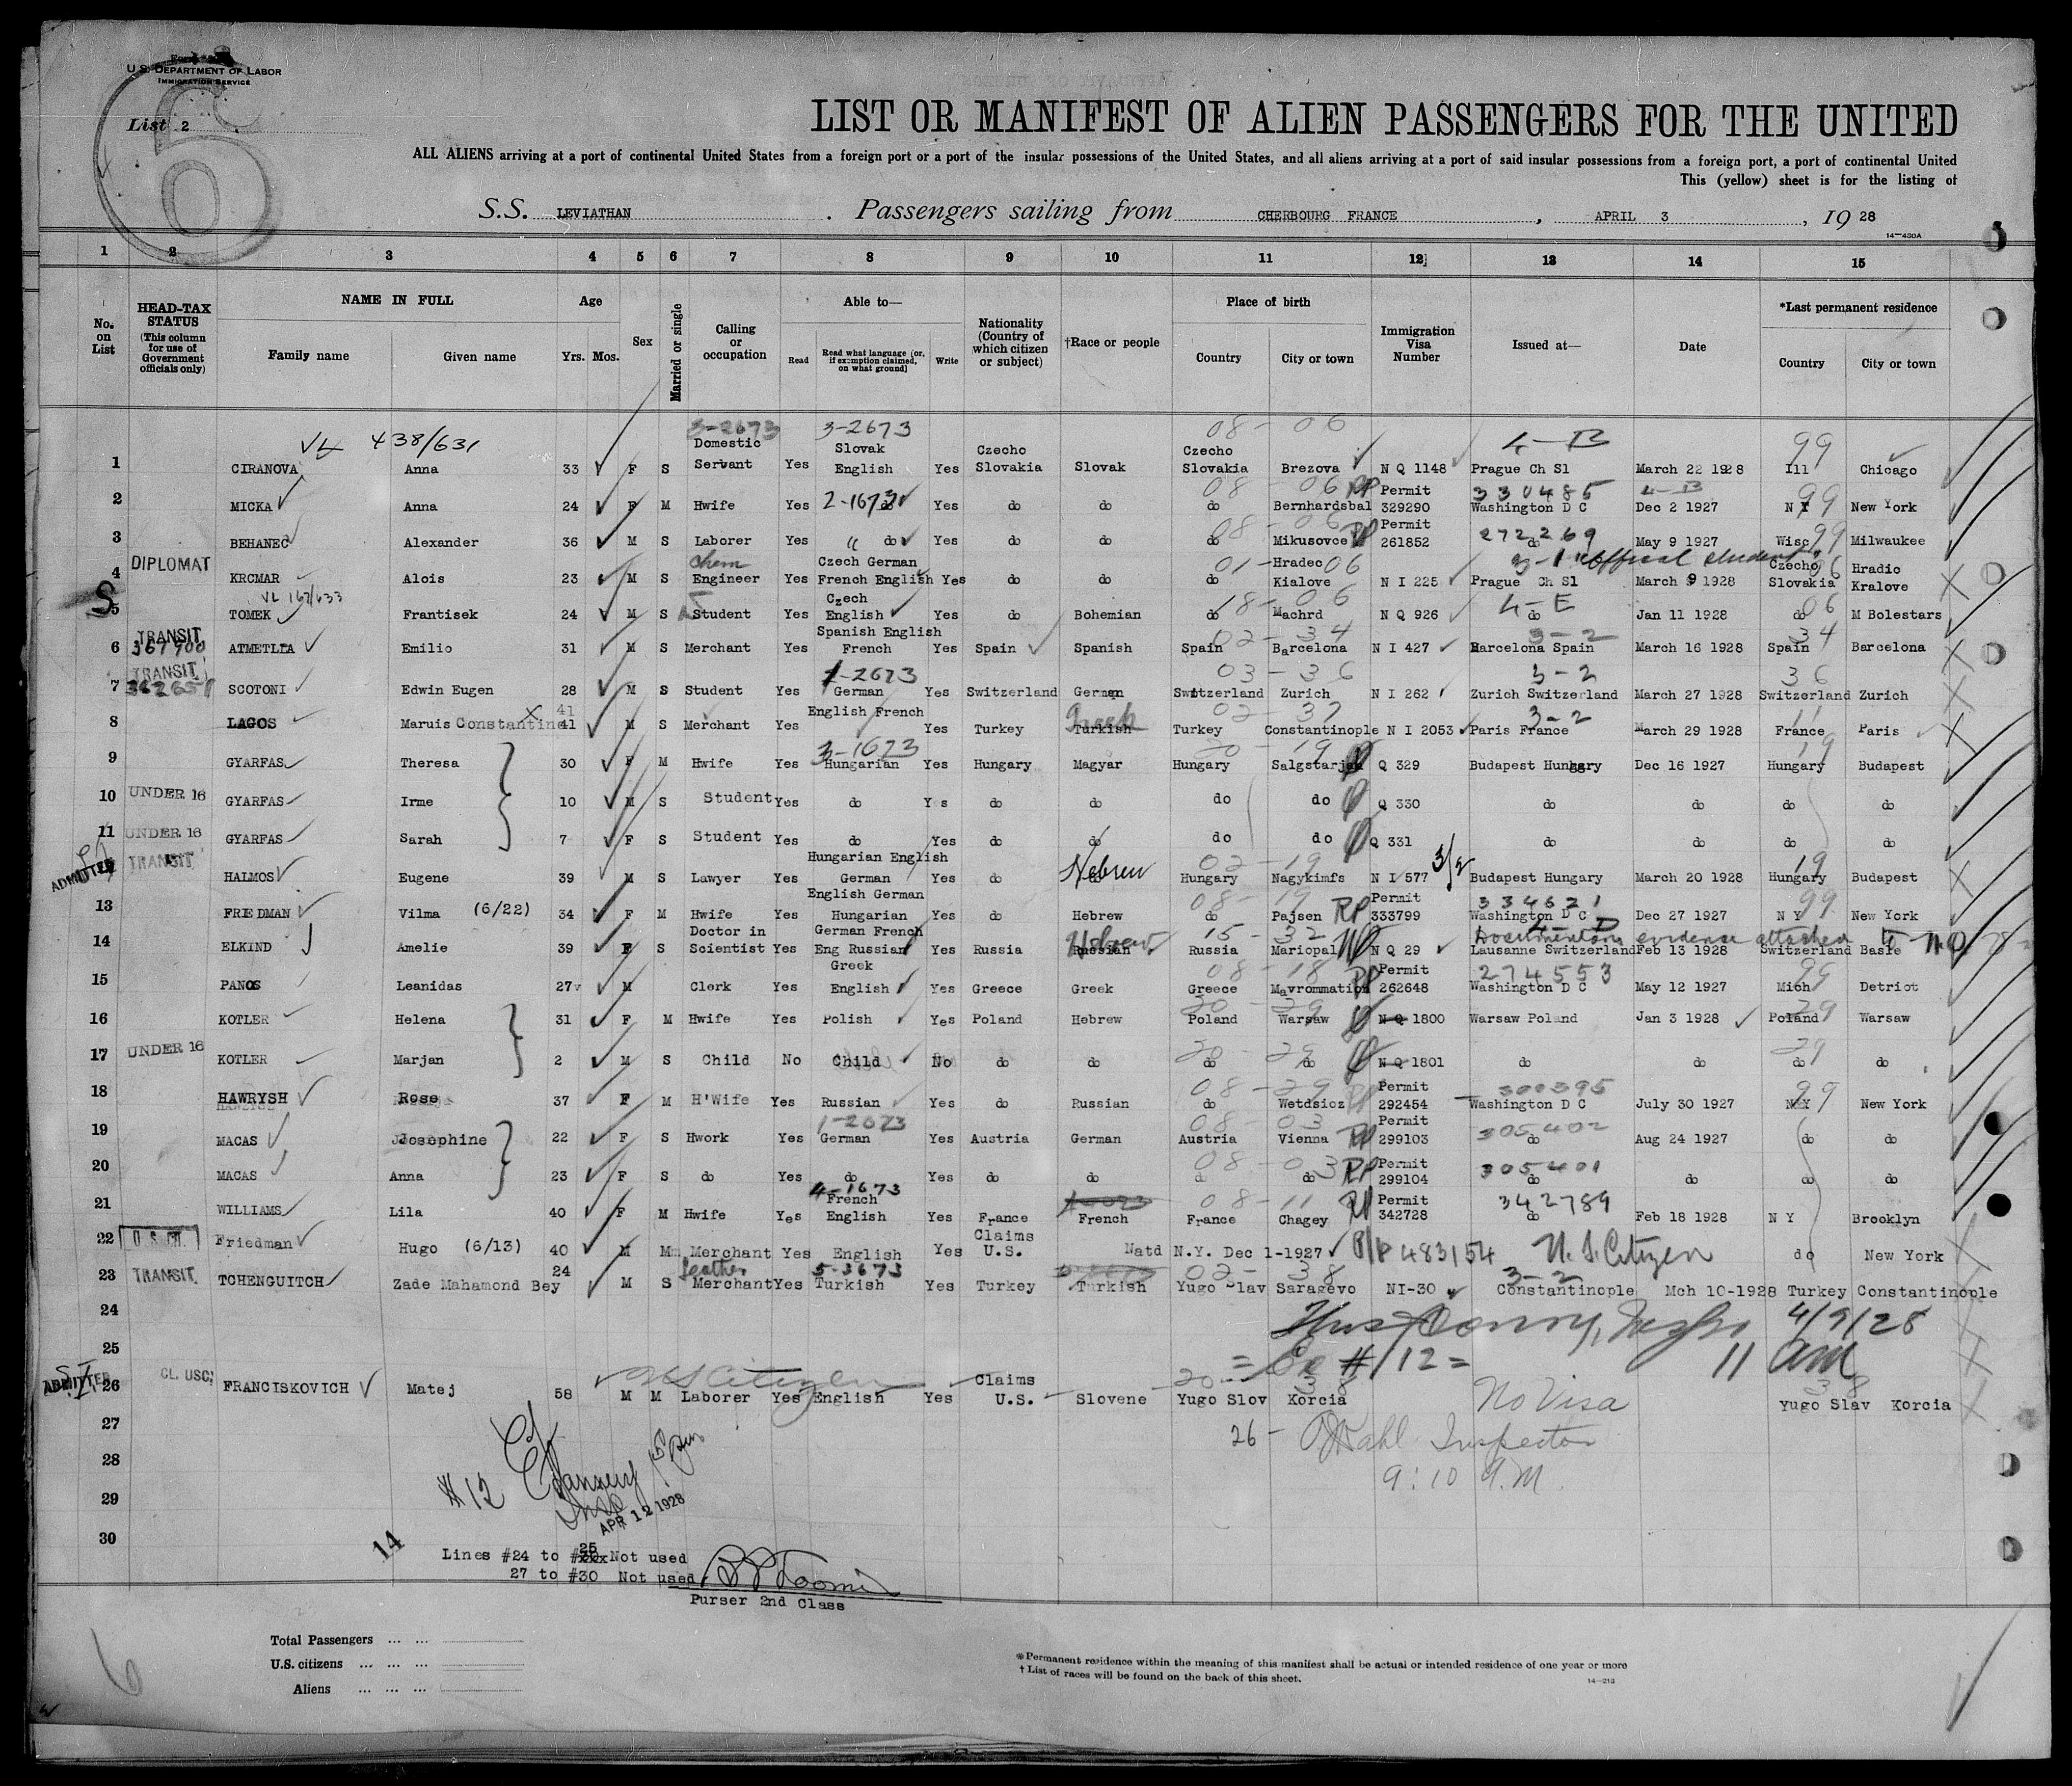 U.S. DEPARTMENT OF LABOR
IMMIGRATION SERVICE
List 2
6
LIST OR MANIFEST OF ALIEN PASSENGERS FOR THE UNITED
ALL ALIENS arriving at a port of continental United States from a foreign port or a port of the insular possessions of the United States, and all aliens arriving at a port of said insular possessions from a foreign port, a port of continental United
This (yellow) sheet is for the listing of
S.S. LEVIATHAN . Passengers sailing from CHERBOURG FRANCE , APRIL 3 , 19 28
14—430A
1 2 3 4 5 6 7 8 9 10 11 12 13 14 15
No. on List HEAD-TAX STATUS (This column for use of Government officials only) NAME IN FULL Family name Given name Age Yrs. Mos. Sex Married or single Calling or occupation Able to— Read Read what language (or, if exemption claimed, on what ground) Write Nationality (Country of which citizen or subject) †Race or people Place of birth Country City or town Immigration Visa Number Issued at— Date *Last permanent residence Country City or town
438/631 3-2673 3-2673 08-06 4-B 99
1 CIRANOVA Anna 33 F S Domestic Servant Yes Slovak English Yes Czecho Slovakia Slovak Czecho Slovakia Brezova N Q 1148 Prague Ch Sl March 22 1928 Ill Chicago
08-06 RP 330485 4-B 99
2 MICKA Anna 24 F M Hwife Yes 2-1673 do Yes do do do Bernhardsbal Permit 329290 Washington D C Dec 2 1927 N Y New York
08-06 RP 272269 99
3 BEHANEC Alexander 36 M S Laborer Yes " do Yes do do do Mikusovce Permit 261852 do May 9 1927 Wisc Milwaukee
DIPLOMAT Chem 01-06 3-1 "Official student" 06
4 KRCMAR Alois 23 M S Engineer Yes Czech German French English Yes do do do Hradec Kialove N I 225 Prague Ch Sl March 9 1928 Czecho Slovakia Hradic Kralove
S 18-06 4-E 06
5 TOMEK Frantisek 24 M S Student Yes Czech English Yes do Bohemian do Machrd N Q 926 do Jan 11 1928 do M Bolestars
TRANSIT 367900 02-34 3-2 34
6 ATMETLLA Emilio 31 M S Merchant Yes Spanish English French Yes Spain Spanish Spain Barcelona N I 427 Barcelona Spain March 16 1928 Spain Barcelona
TRANSIT 1-2673 03-36 3-2 36
7 SCOTONI Edwin Eugen 28 M S Student Yes German Yes Switzerland German Switzerland Zurich N I 262 Zurich Switzerland March 27 1928 Switzerland Zurich
41 Greek 02-37 3-2 11
8 LAGOS Maruis Constantine 41 M S Merchant Yes English French Yes Turkey Turkish Turkey Constantinople N I 2053 Paris France March 29 1928 France Paris
3-1673 20-19 19
9 GYARFAS Theresa 30 F M Hwife Yes Hungarian Yes Hungary Magyar Hungary Salgstarjan Q 329 Budapest Hungary Dec 16 1927 Hungary Budapest
10 UNDER 16 GYARFAS Irme 10 M S Student Yes do Y s do do do do Q 330 do do do do
11 UNDER 16 GYARFAS Sarah 7 F S Student Yes do Yes do do do do Q 331 do do do do
ADMITTED TRANSIT Hebrew 02-19 3/2 19
HALMOS Eugene 39 M S Lawyer Yes Hungarian English German Yes do do Hungary Nagykimfs N I 577 Budapest Hungary March 20 1928 Hungary Budapest
08-19 RP 334621 99
13 FRIEDMAN Vilma (6/22) 34 F M Hwife Yes English German Hungarian Yes do Hebrew do Pajsen Permit 333799 Washington D C Dec 27 1927 N Y New York
Hebrew 15-32 4-D Documentary evidence attached
14 ELKIND Amelie 39 F S Doctor in Scientist Yes German French Eng Russian Yes Russia Russian Russia Mariopal N Q 29 Lausanne Switzerland Feb 13 1928 Switzerland Basle
08-18 RP 274553 99
15 PANOS Leanidas 27 M Clerk Yes Greek English Yes Greece Greek Greece Mavrommation Permit 262648 Washington D C May 12 1927 Mich Detriot
20-29 29
16 KOTLER Helena 31 F M Hwife Yes Polish Yes Poland Hebrew Poland Warsaw N Q 1800 Warsaw Poland Jan 3 1928 Poland Warsaw
20-29 29
17 UNDER 16 KOTLER Marjan 2 M S Child No Child No do do do do N Q 1801 do do do do
08-29 RP 300395 99
18 HAWRYSH Rose 37 F M H'Wife Yes Russian Yes do Russian do Wetdsioz Permit 292454 Washington D C July 30 1927 N Y New York
1-2673 08-03 RP 305402
19 MACAS Josephine 22 F S Hwork Yes German Yes Austria German Austria Vienna Permit 299103 do Aug 24 1927 do do
08-03 RP 305401
20 MACAS Anna 23 F S do Yes do Yes do do do do Permit 299104 do do do do
4-1673 08-11 RP 342789
21 WILLIAMS Lila 40 F M Hwife Yes French English Yes France French France Chagey Permit 342728 do Feb 18 1928 N Y Brooklyn
22 U.S. Friedman Hugo (6/13) 40 M M Merchant Yes English Yes Claims U.S. Natd N.Y. Dec 1-1927 P/P 483154 U.S. Citizen do New York
leather 5-3673 02-38 3-2
23 TRANSIT TCHENGUITCH Zade Mahamond Bey 24 M S Merchant Yes Turkish Yes Turkey Turkish Yugo Slav Saragevo NI-30 Constantinople Mch 10-1928 Turkey Constantinople
24 4/9/28
25 = # 12 = 11 am
ADMITTED S.I. CL. USC; US Citizen 20-38 38
26 FRANCISKOVICH Matej 58 M M Laborer Yes English Yes Claims U.S. Slovene Yugo Slov Korcia No Visa Yugo Slav Korcia
27 26 - Inspector
28 9:10 A.M.
29 #12 Insp APR 12 1928
30
14
Lines #24 to #25 Not used
27 to #30 Not used
Purser 2nd Class
6
Total Passengers ... ...
U.S. citizens ... ... ...
Aliens ... ... ...
*Permanent residence within the meaning of this manifest shall be actual or intended residence of one year or more
†List of races will be found on the back of this sheet.
14—213